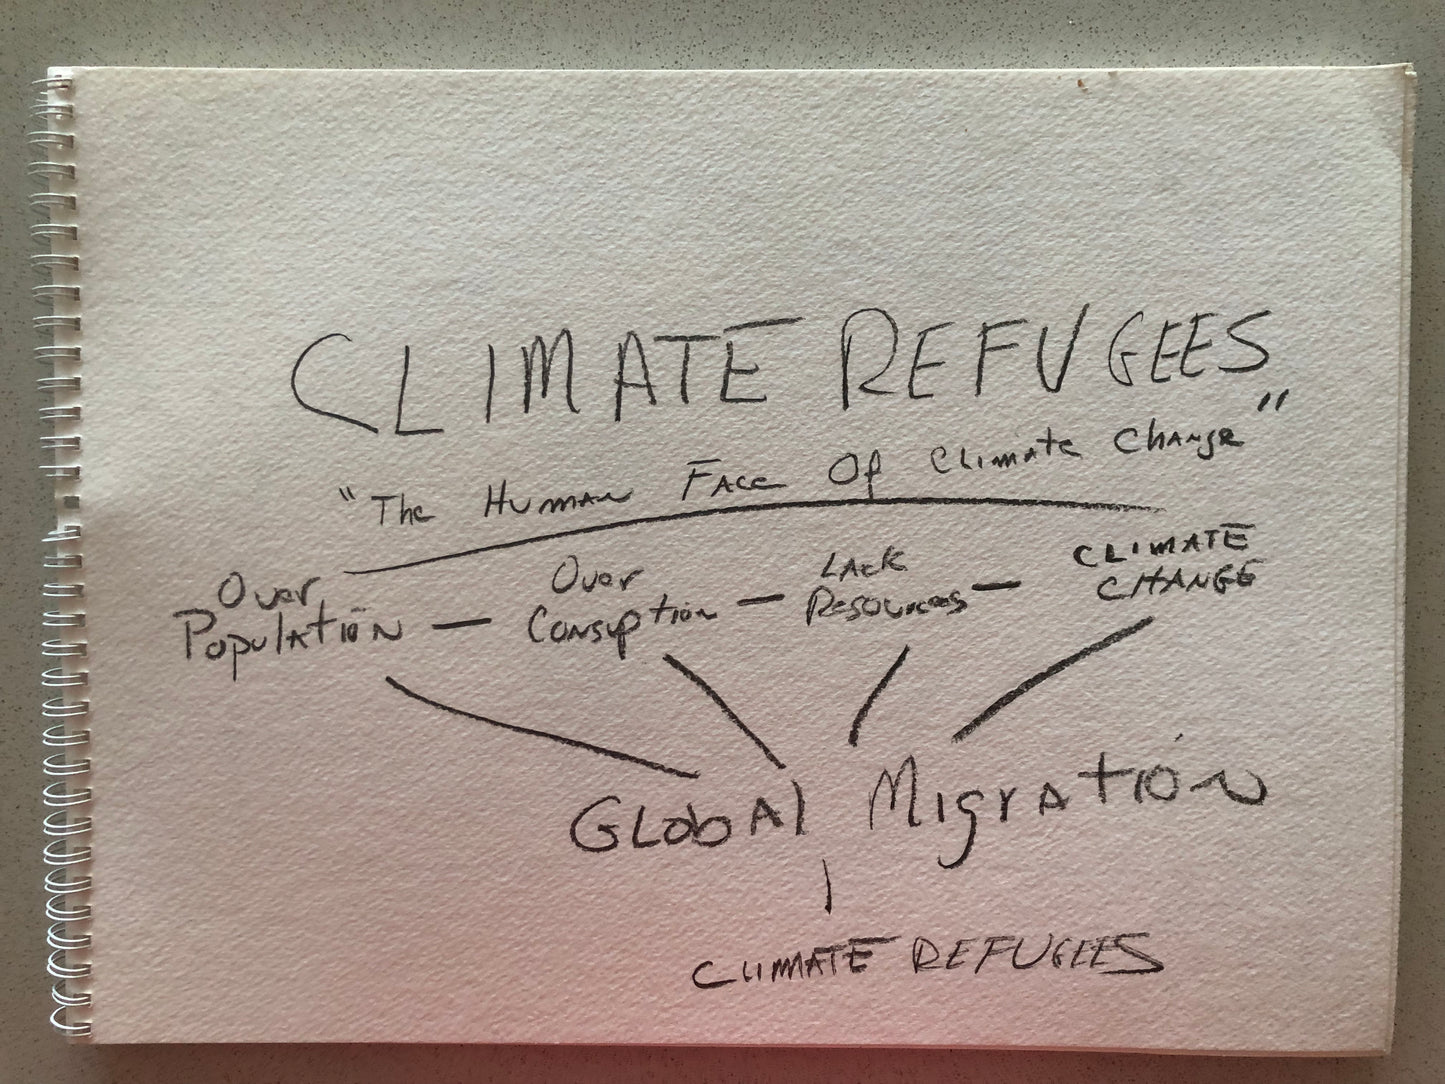 CLIMATE REFUGEES
"The Human Face Of Climate Change"
Over Population — Over Consuption — Lack Resources — CLIMATE CHANGE
Global Migration
CLIMATE REFUGEES